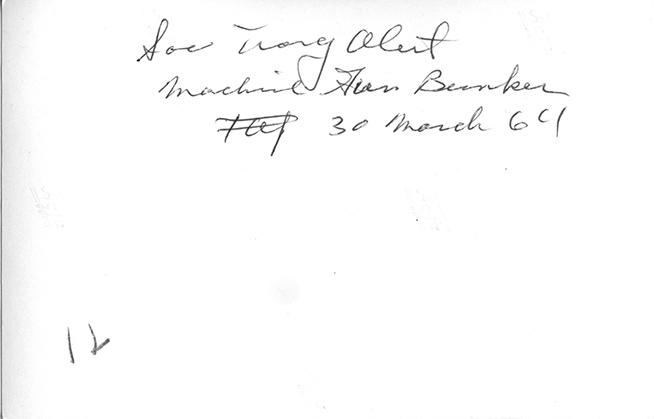 Soc Trang Alert
Machine Gun Bunker
30 March 64
12